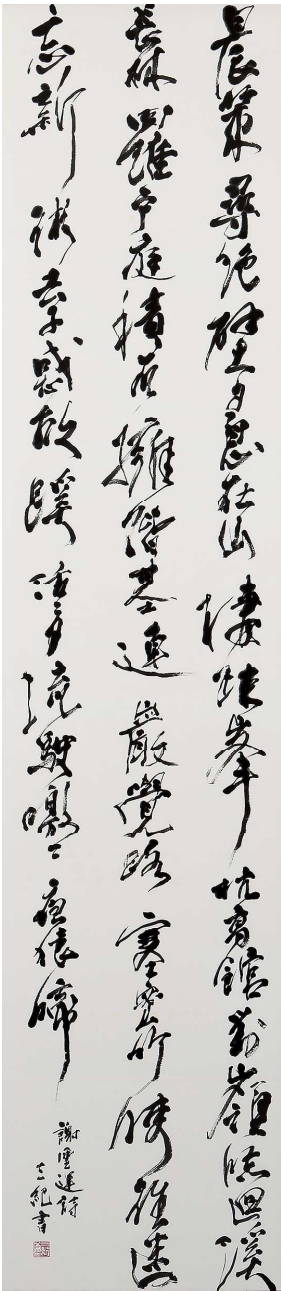 晨策尋絶壁夕息在山棲疎峯抗高館對嶺臨迴溪
長林羅戸庭積石擁階基連巖覺路塞密竹使徑迷
忘新術去子惑故蹊活々夕流駛噭々夜猿啼
謝霊運詩
紀書